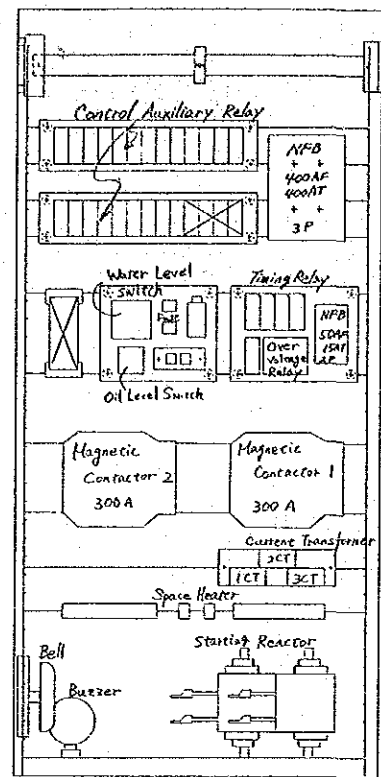 Control Auxiliary Relay
NFB
400AF
400AT
3P
Water Level
Switch
Oil Level Switch
Timing Relay
Over
Voltage
Relay
NFB
50AF
15AT
2P
Magnetic
Contactor 2
300A
Magnetic
Contactor 1
300A
Current Transformer
2CT
1CT
3CT
Space Heater
Starting Reactor
Bell
Buzzer